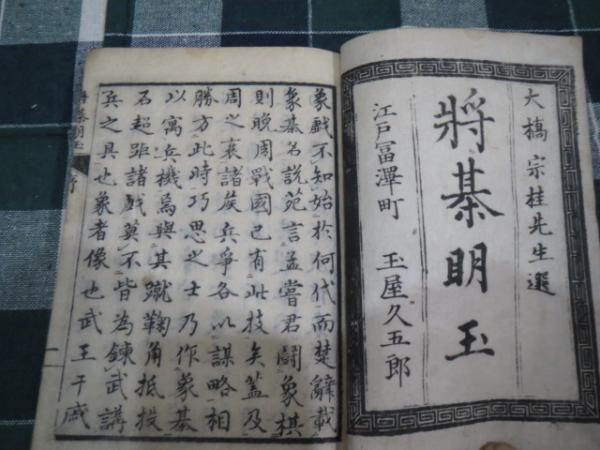 大橋宗桂先生選
將棊明玉
江戸冨澤町 玉屋久五郎
象戲不知始於何代而楚辭載
象棊名說苑言孟嘗君鬪象棋
則晚周戰國已有此技矣蓋及
周之衰諸侯兵爭各以謀略相
勝方此時巧思之士乃作象棊
以寓兵機焉與其蹴鞠角抵投
石超距諸戲莫不皆為鍊武講
兵之具也象者像也武王干戚
將棊明玉
序
一